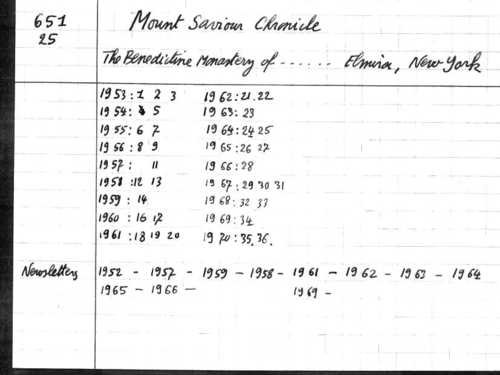 651
25
Mount Saviour Chronicle
The Benedictine Monastery of ...... Elmira, New York
1953:1 2 3 1962:21.22
1954:4 5 1963:23
1955:6 7 1964:24 25
1956:8 9 1965:26 27
1957: 11 1966:28
1958:12 13 1967:29 30 31
1959: 14 1968:32 33
1960:16 17 1969:34
1961:18 19 20 1970:35.36.
Newsletters 1952 - 1957 - 1959 - 1958 - 1961 - 1962 - 1963 - 1964
1965 - 1966 - 1969 -